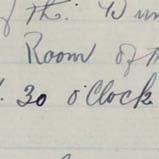 of th
Room of th
30 o'Clock